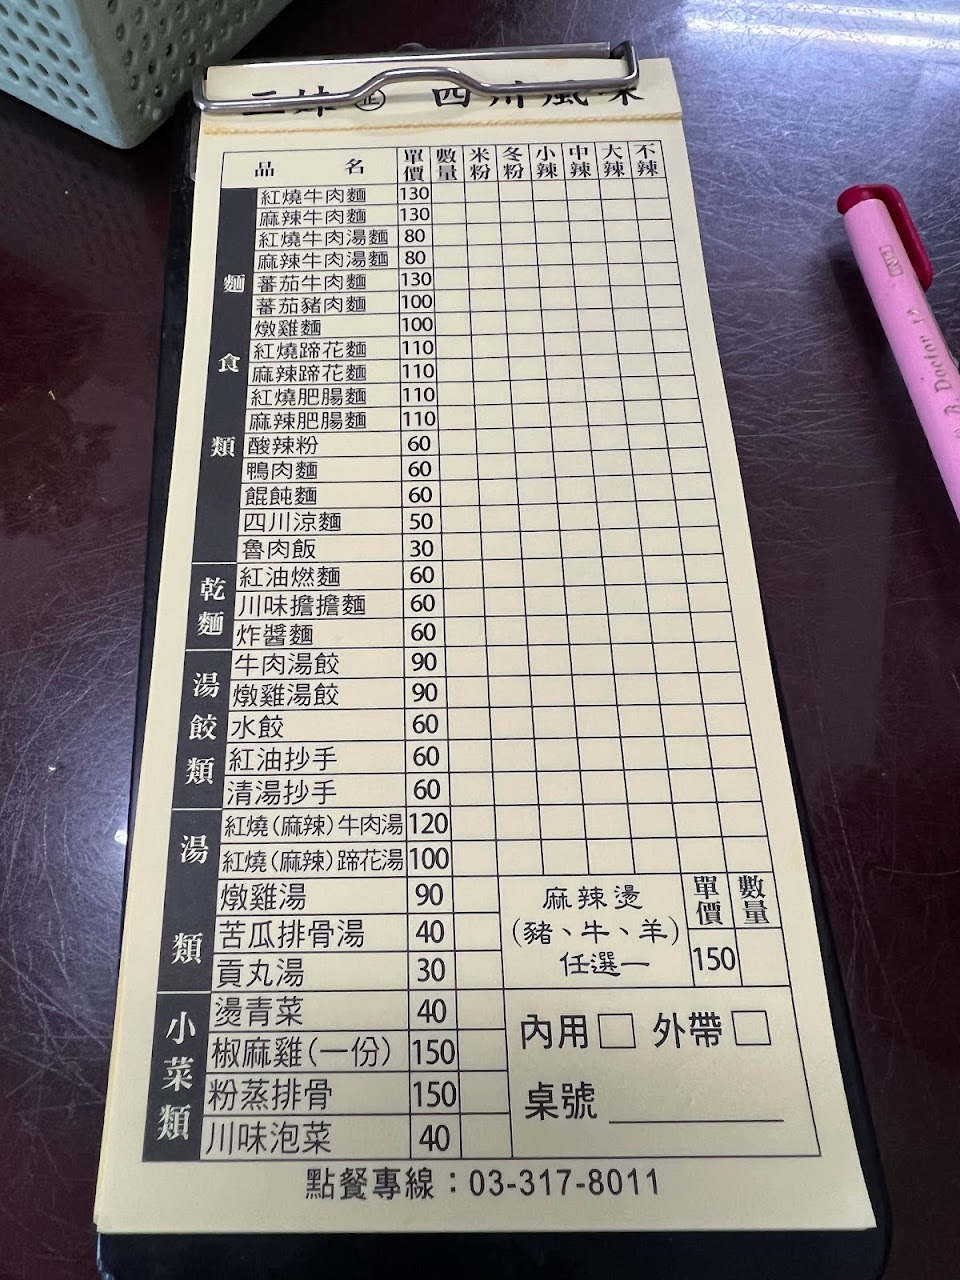 三妹 正 四川風味
品名 單價 數量 米粉 冬粉 小辣 中辣 大辣 不辣
麵食類
紅燒牛肉麵 130
麻辣牛肉麵 130
紅燒牛肉湯麵 80
麻辣牛肉湯麵 80
蕃茄牛肉麵 130
蕃茄豬肉麵 100
燉雞麵 100
紅燒蹄花麵 110
麻辣蹄花麵 110
紅燒肥腸麵 110
麻辣肥腸麵 110
酸辣粉 60
鴨肉麵 60
餛飩麵 60
四川涼麵 50
魯肉飯 30
乾麵
紅油燃麵 60
川味擔擔麵 60
炸醬麵 60
湯餃類
牛肉湯餃 90
燉雞湯餃 90
水餃 60
紅油抄手 60
清湯抄手 60
湯類
紅燒(麻辣)牛肉湯 120
紅燒(麻辣)蹄花湯 100
燉雞湯 90
苦瓜排骨湯 40
貢丸湯 30
小菜類
燙青菜 40
椒麻雞(一份) 150
粉蒸排骨 150
川味泡菜 40
麻辣燙
(豬、牛、羊)
任選一
單價 數量
150
內用□ 外帶□
桌號
點餐專線：03-317-8011